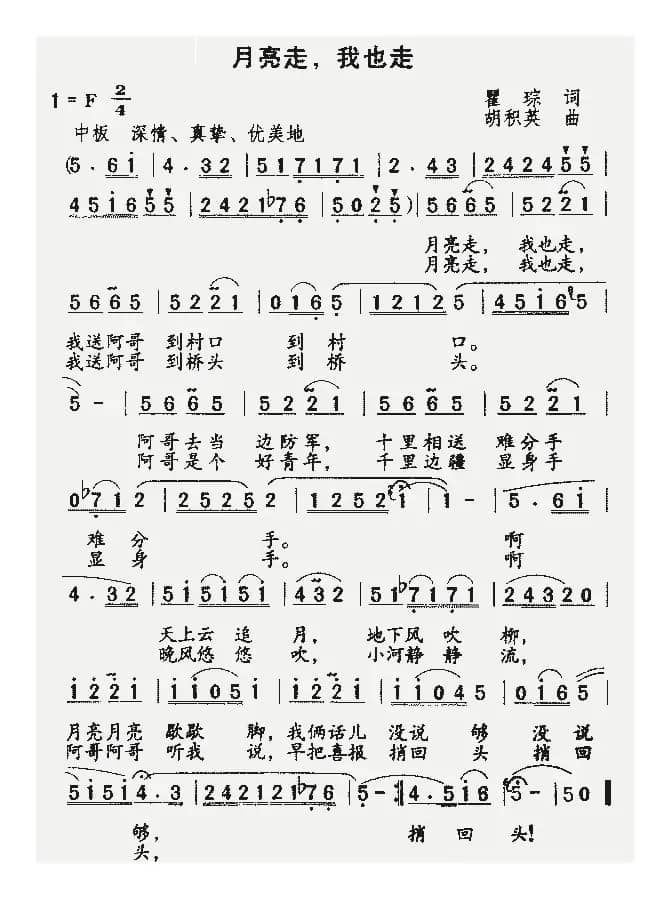 月亮走，我也走
1 = F 2/4
瞿 琮 词
胡积英 曲
中板 深情、真挚、优美地
(5 . 6 1 | 4 . 3 2 | 5 1 7 1 7 1 | 2 . 4 3 | 2 4 2 4 5 5 |
4 5 1 6 5 5 | 2 4 2 1 ♭7 6 | 5 0 2 5 ) | 5 6 6 5 | 5 2 2 1 |
月亮走， 我也走，
月亮走， 我也走，
5 6 6 5 | 5 2 2 1 | 0 1 6 5 | 1 2 1 2 5 | 4 5 1 6 5
我送阿哥 到村口 到 村 口。
我送阿哥 到桥头 到 桥 头。
5 - | 5 6 6 5 | 5 2 2 1 | 5 6 6 5 | 5 2 2 1 |
阿哥去当 边防军， 十里相送 难分手
阿哥是个 好青年， 千里边疆 显身手
0 ♭7 1 2 | 2 5 2 5 2 | 1 2 5 2 1 | 1 - | 5 . 6 1 |
难 分 手。 啊
显 身 手。 啊
4 . 3 2 | 5 1 5 1 5 1 | 4 3 2 | 5 1 ♭7 1 7 1 | 2 4 3 2 0 |
天上云 追 月， 地下风 吹 柳，
晚风悠 悠 吹， 小河静 静 流，
1 2 2 1 | 1 1 0 5 1 | 1 2 2 1 | 1 1 0 4 5 | 0 1 6 5 |
月亮月亮 歇歇 脚，我俩话儿 没说 够 没 说
阿哥阿哥 听我 说，早把喜报 捎回 头 捎 回
5 1 5 1 4 . 3 | 2 4 2 1 2 1 ♭7 6 | 5 - :| 4 . 5 1 6 | 5 - | 5 0 ‖
够， 捎 回 头！
头，